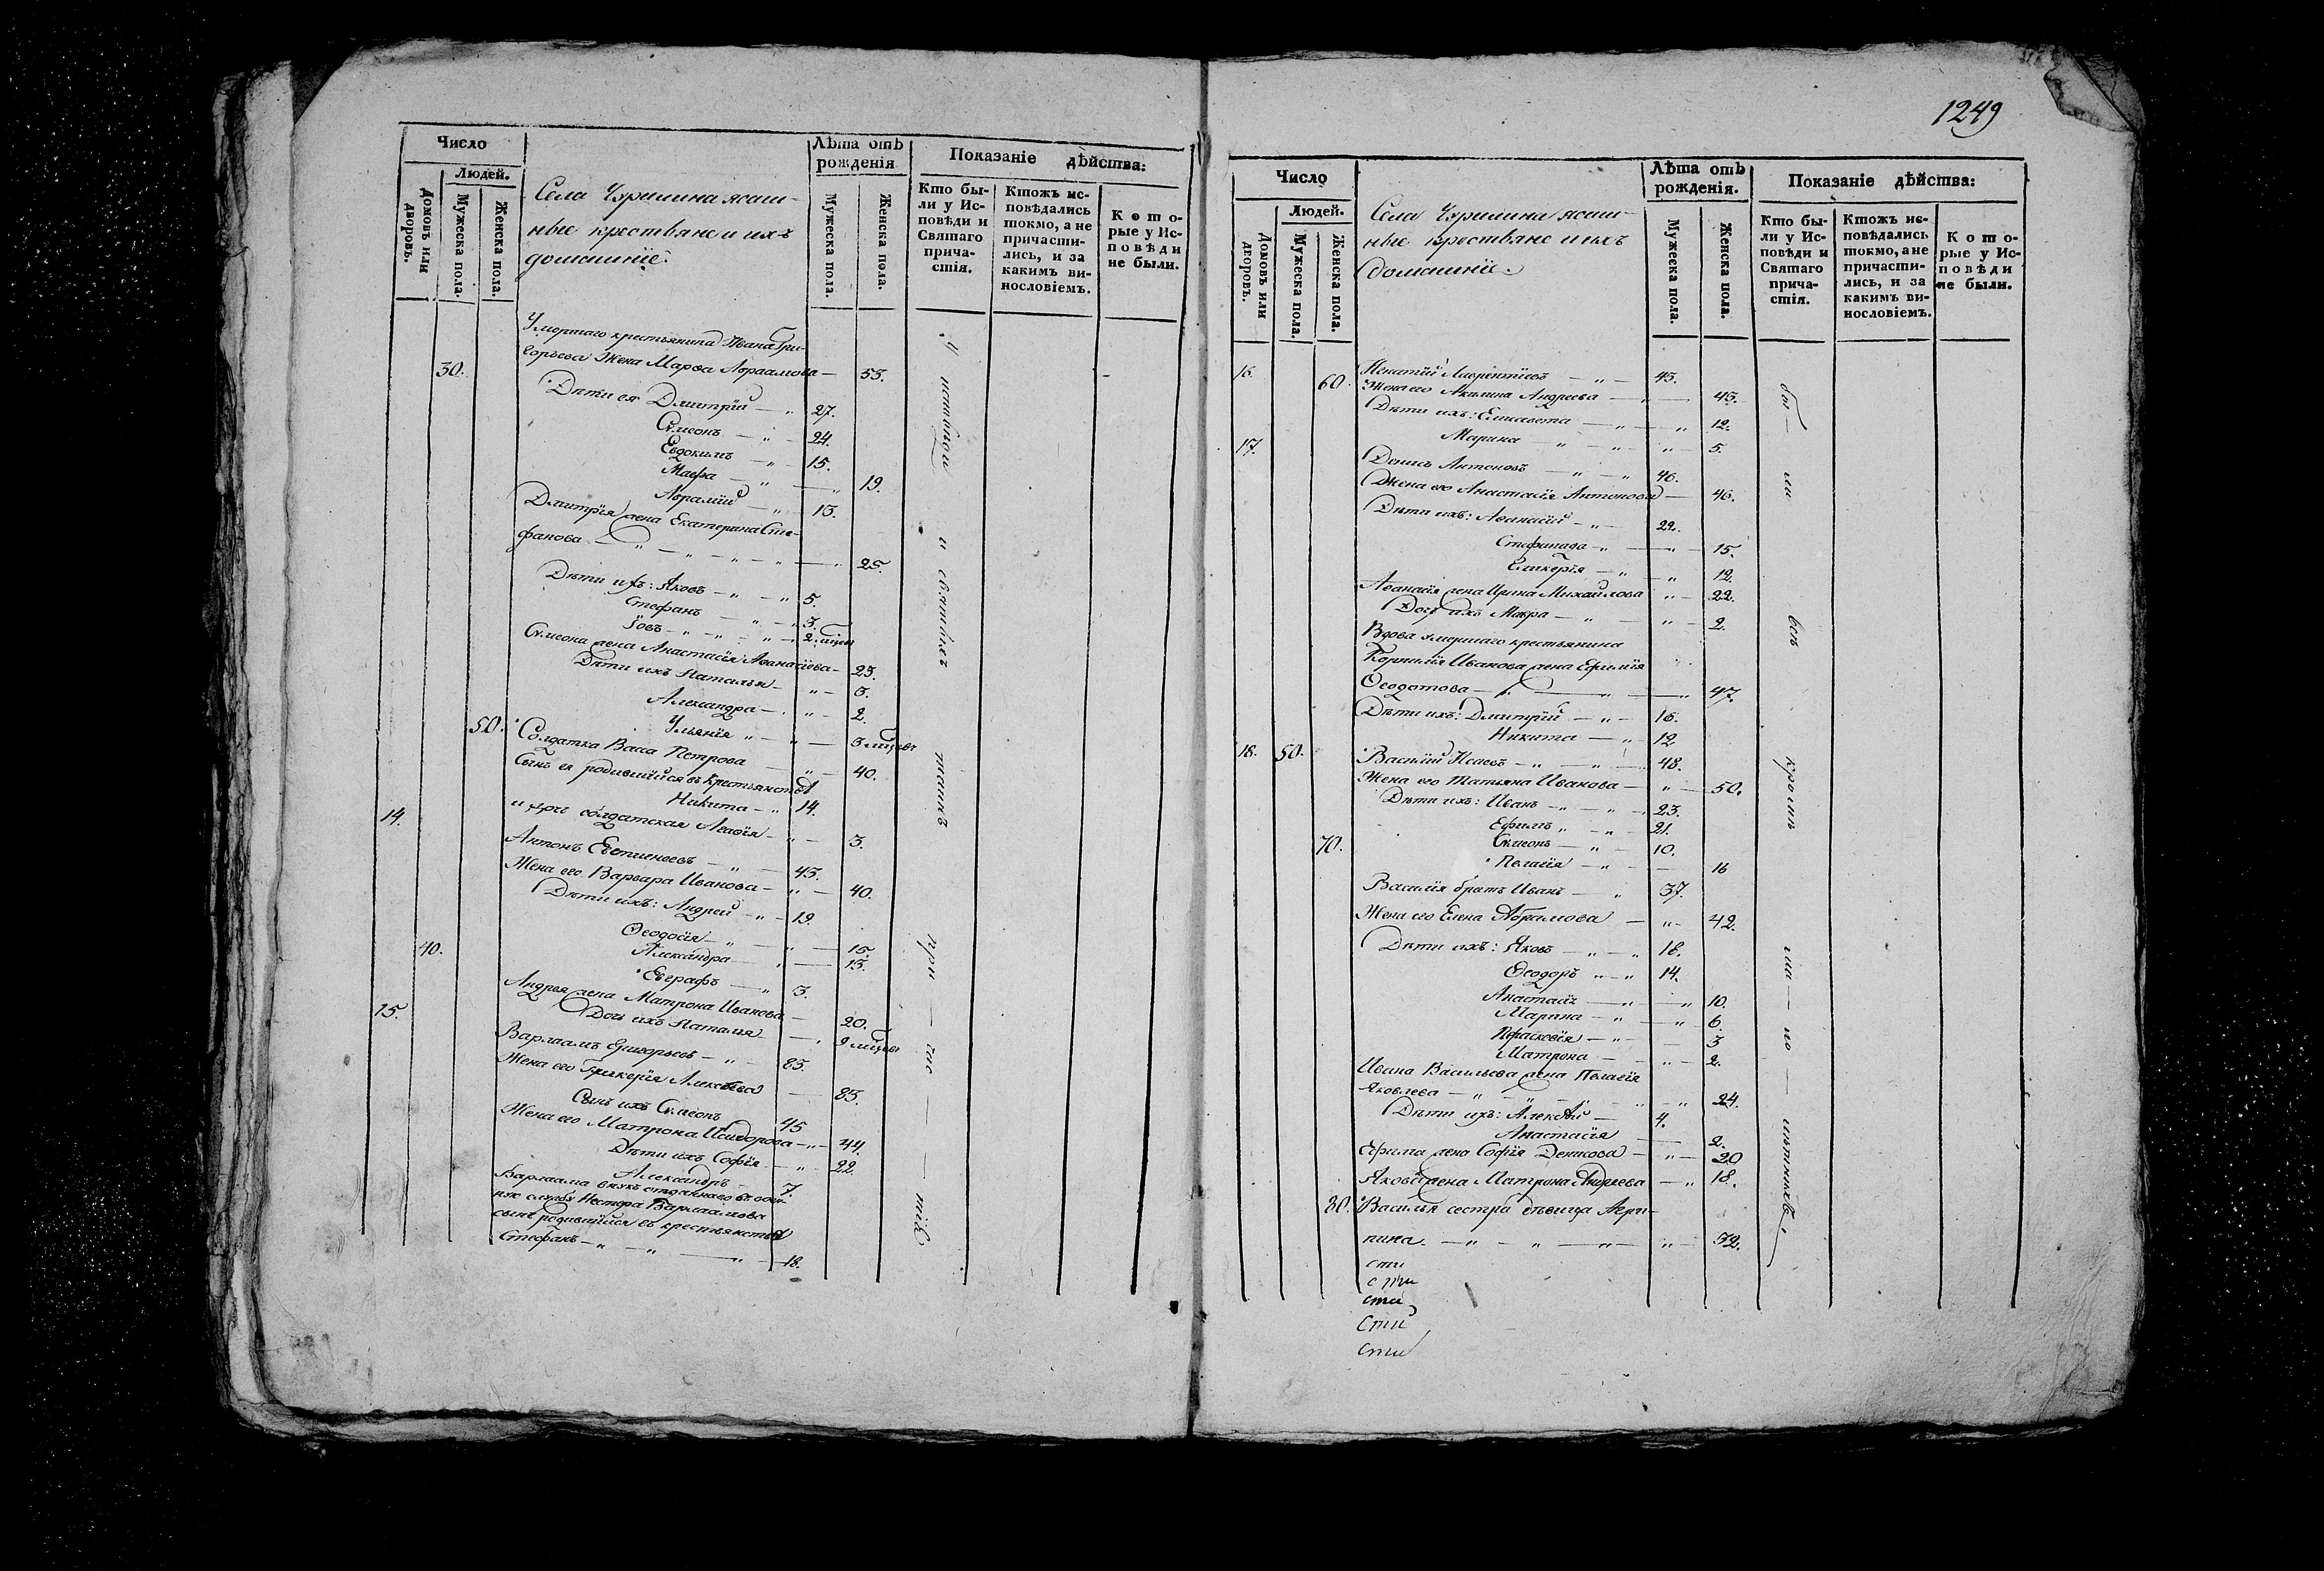 Число
Людей.
Домовъ или дворовъ.
Мужеска пола.
Женска пола.
Села Чурилина ясаш-
ные крестьяне и ихъ
домашніе.
Лѣта отъ
рожденія
Мужеска пола.
Женска пола.
Показаніе дѣйства:
Кто бы-
ли у Ис-
повѣди и
Святаго
прича-
стія.
Ктожъ ис-
повѣдались
токмо, а не
причасти-
лись, и за
какимъ ви-
нословіемъ.
Кото-
рые у Ис-
повѣди
не были.
Умершаго крестьянина Ивана Гри-
30. горьева Жена Марѳа Авраамова — 53.
Дѣти ея Дмитрій — " 27.
Сѵмеонъ — " — 24.
Евдокимъ — " — 15.
Мавра — " — " 19.
Аврамій — " — 13.
Дмитрія жена Екатерина Сте-
фанова — " — " — " — " — " 25.
Дѣти ихъ: Яковъ — " — " 5.
Стефанъ — " — " 3.
Іовъ — " — " — " — 2. мѣсяц
Сѵмеона жена Анастасія Аѳанасіева — 23.
Дѣти ихъ Наталья — " — 3.
Александра — " — 2.
Ульянія " — " — 3 мѣсяц
50. Солдатка Васса Петрова — " — 40.
Сынъ ея родившійся въ крестьянствѣ
Никита — " 14.
и дочь солдатская Агаѳія — " — 3.
14. Антонъ Евтигнеевъ — " — 43.
Жена его Варвара Иванова — " — 40.
Дѣти ихъ: Андрей — " — 19.
Ѳеодосія — " — " — 15.
40. Александра — " — 13.
Евграфъ — " 3.
Андрея жена Матрона Иванова — 20.
Дочь ихъ Наталья — " 9 мѣсяц
15. Варлаамъ Григорьевъ — " — 83.
Жена его Гликерія Алексѣева — 83.
Сынъ ихъ Сѵмеонъ 45
Жена его Матрона Исидорова — " — 44.
Дѣти ихъ Софія — " — 22.
Александръ — 7.
Варлаама внукъ отданнаго въ воен-
ную службу Нестора Варлаамова
сынъ родившійся въ крестьянствѣ
Стефанъ — " — " — " — 18.
у исповѣди и святыхъ таинъ при — ча — стіѣ
1249
Число
Людей.
Домовъ или дворовъ.
Мужеска пола.
Женска пола.
Села Чурилина ясаш-
ные крестьяне и ихъ
домашніе.
Лѣта отъ
рожденія.
Мужеска пола.
Женска пола.
Показаніе дѣйства:
Кто бы-
ли у Ис-
повѣди и
Святаго
прича-
стія.
Ктожъ ис-
повѣдались
токмо, а не
причасти-
лись, и за
какимъ ви-
нословіемъ.
Кото-
рые у Ис-
повѣди
не были.
16. Игнатій Лаврентіевъ — " — 45.
60. Жена его Акилина Андреева — " — 43.
Дѣти ихъ: Елисавета — " — " 12.
Марина — " — " — 5.
17. Денисъ Антоновъ — " — " 46.
Жена его Анастасія Антонова — 46.
Дѣти ихъ: Аѳанасій — " — 22.
Стефанида — " — " — 15.
Гликерія — " — " 12.
Аѳанасія жена Ирина Михаилова " — 22.
Дочь ихъ Мавра — " — " — 2.
Вдова умершаго крестьянина
Корнилія Иванова жена Ефимія
Ѳеодотова — " — " — " 47.
Дѣти ихъ: Дмитрій — " — 16.
Никита — " — 12
18. 50. Василій Исаевъ — " — " — 48.
Жена его Татьяна Иванова — " — 50.
Дѣти ихъ: Иванъ — " — " 23.
Ефимъ " — " — 21.
70. Сѵмеонъ — " — 10.
Пелагія — " — — 16
Василія братъ Иванъ — " 37.
Жена его Елена Абрамова — " — 42.
Дѣти ихъ: Яковъ — " — " 18.
Ѳеодоръ " — " 14.
Анастасія — " — " 10.
Марина — " — " 6.
Парасковія — " — 3
Матрона — " — 2.
Ивана Васильева жена Пелагія
Яковлева — " — " — " — " 24.
Дѣти ихъ: Алексѣй — 4.
Анастасія — 2.
Ефима жена Софія Денисова — " — 20
Якова жена Матрона Андреева — " 18.
80. Василья сестра дѣвица Агри-
пина. — " — " — " — " — 32.
сти
сти
сти
сти
сти
бы — ли всѣ кромѣ ма — ло — лѣтныхъ.